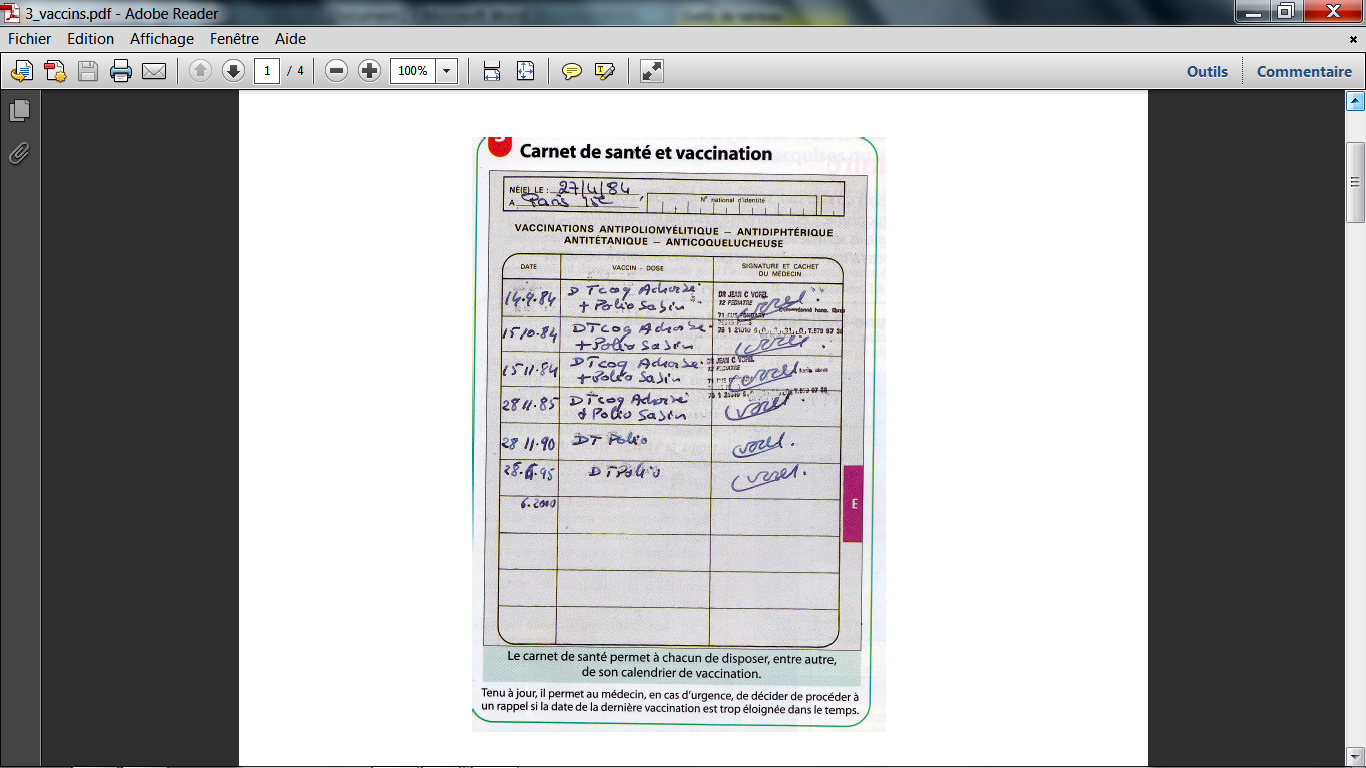 3_vaccins.pdf - Adobe Reader
Fichier Edition Affichage Fenêtre Aide
1 / 4 100% Outils Commentaire
Carnet de santé et vaccination
NÉ(E) LE : 27/4/84
A Paris 15e
N° national d'identité
VACCINATIONS ANTIPOLIOMYÉLITIQUE — ANTIDIPHTÉRIQUE
ANTITÉTANIQUE — ANTICOQUELUCHEUSE
DATE VACCIN - DOSE SIGNATURE ET CACHET
DU MÉDECIN
14.9.84 DTcoq Adsorbé
+ Polio Sabin
DR JEAN C VOREL
12 PEDIATRE
15 10.84 DTcoq Adsorbé
+ Polio Sabin
15 11.84 DTcoq Adsorbé
+ Polio Sabin
DR JEAN C VOREL
12 PEDIATRE
28 11.85 DTcoq Adsorbé
+ Polio Sabin
28 11.90 DT Polio
28.6.95 DT Polio
6.2000
E
Le carnet de santé permet à chacun de disposer, entre autre,
de son calendrier de vaccination.
Tenu à jour, il permet au médecin, en cas d'urgence, de décider de procéder à
un rappel si la date de la dernière vaccination est trop éloignée dans le temps.